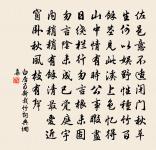 佐邑意不適閉門秋草
生何以娛野性種竹百
餘莖見此溪上色憶得
山中情有時公事暇盡
日繞欄行勿言根未固
勿言陰未成已覺庭宇
內稍稍有餘清最愛近
窗臥秋風枝有聲
白居易新栽竹詞典網